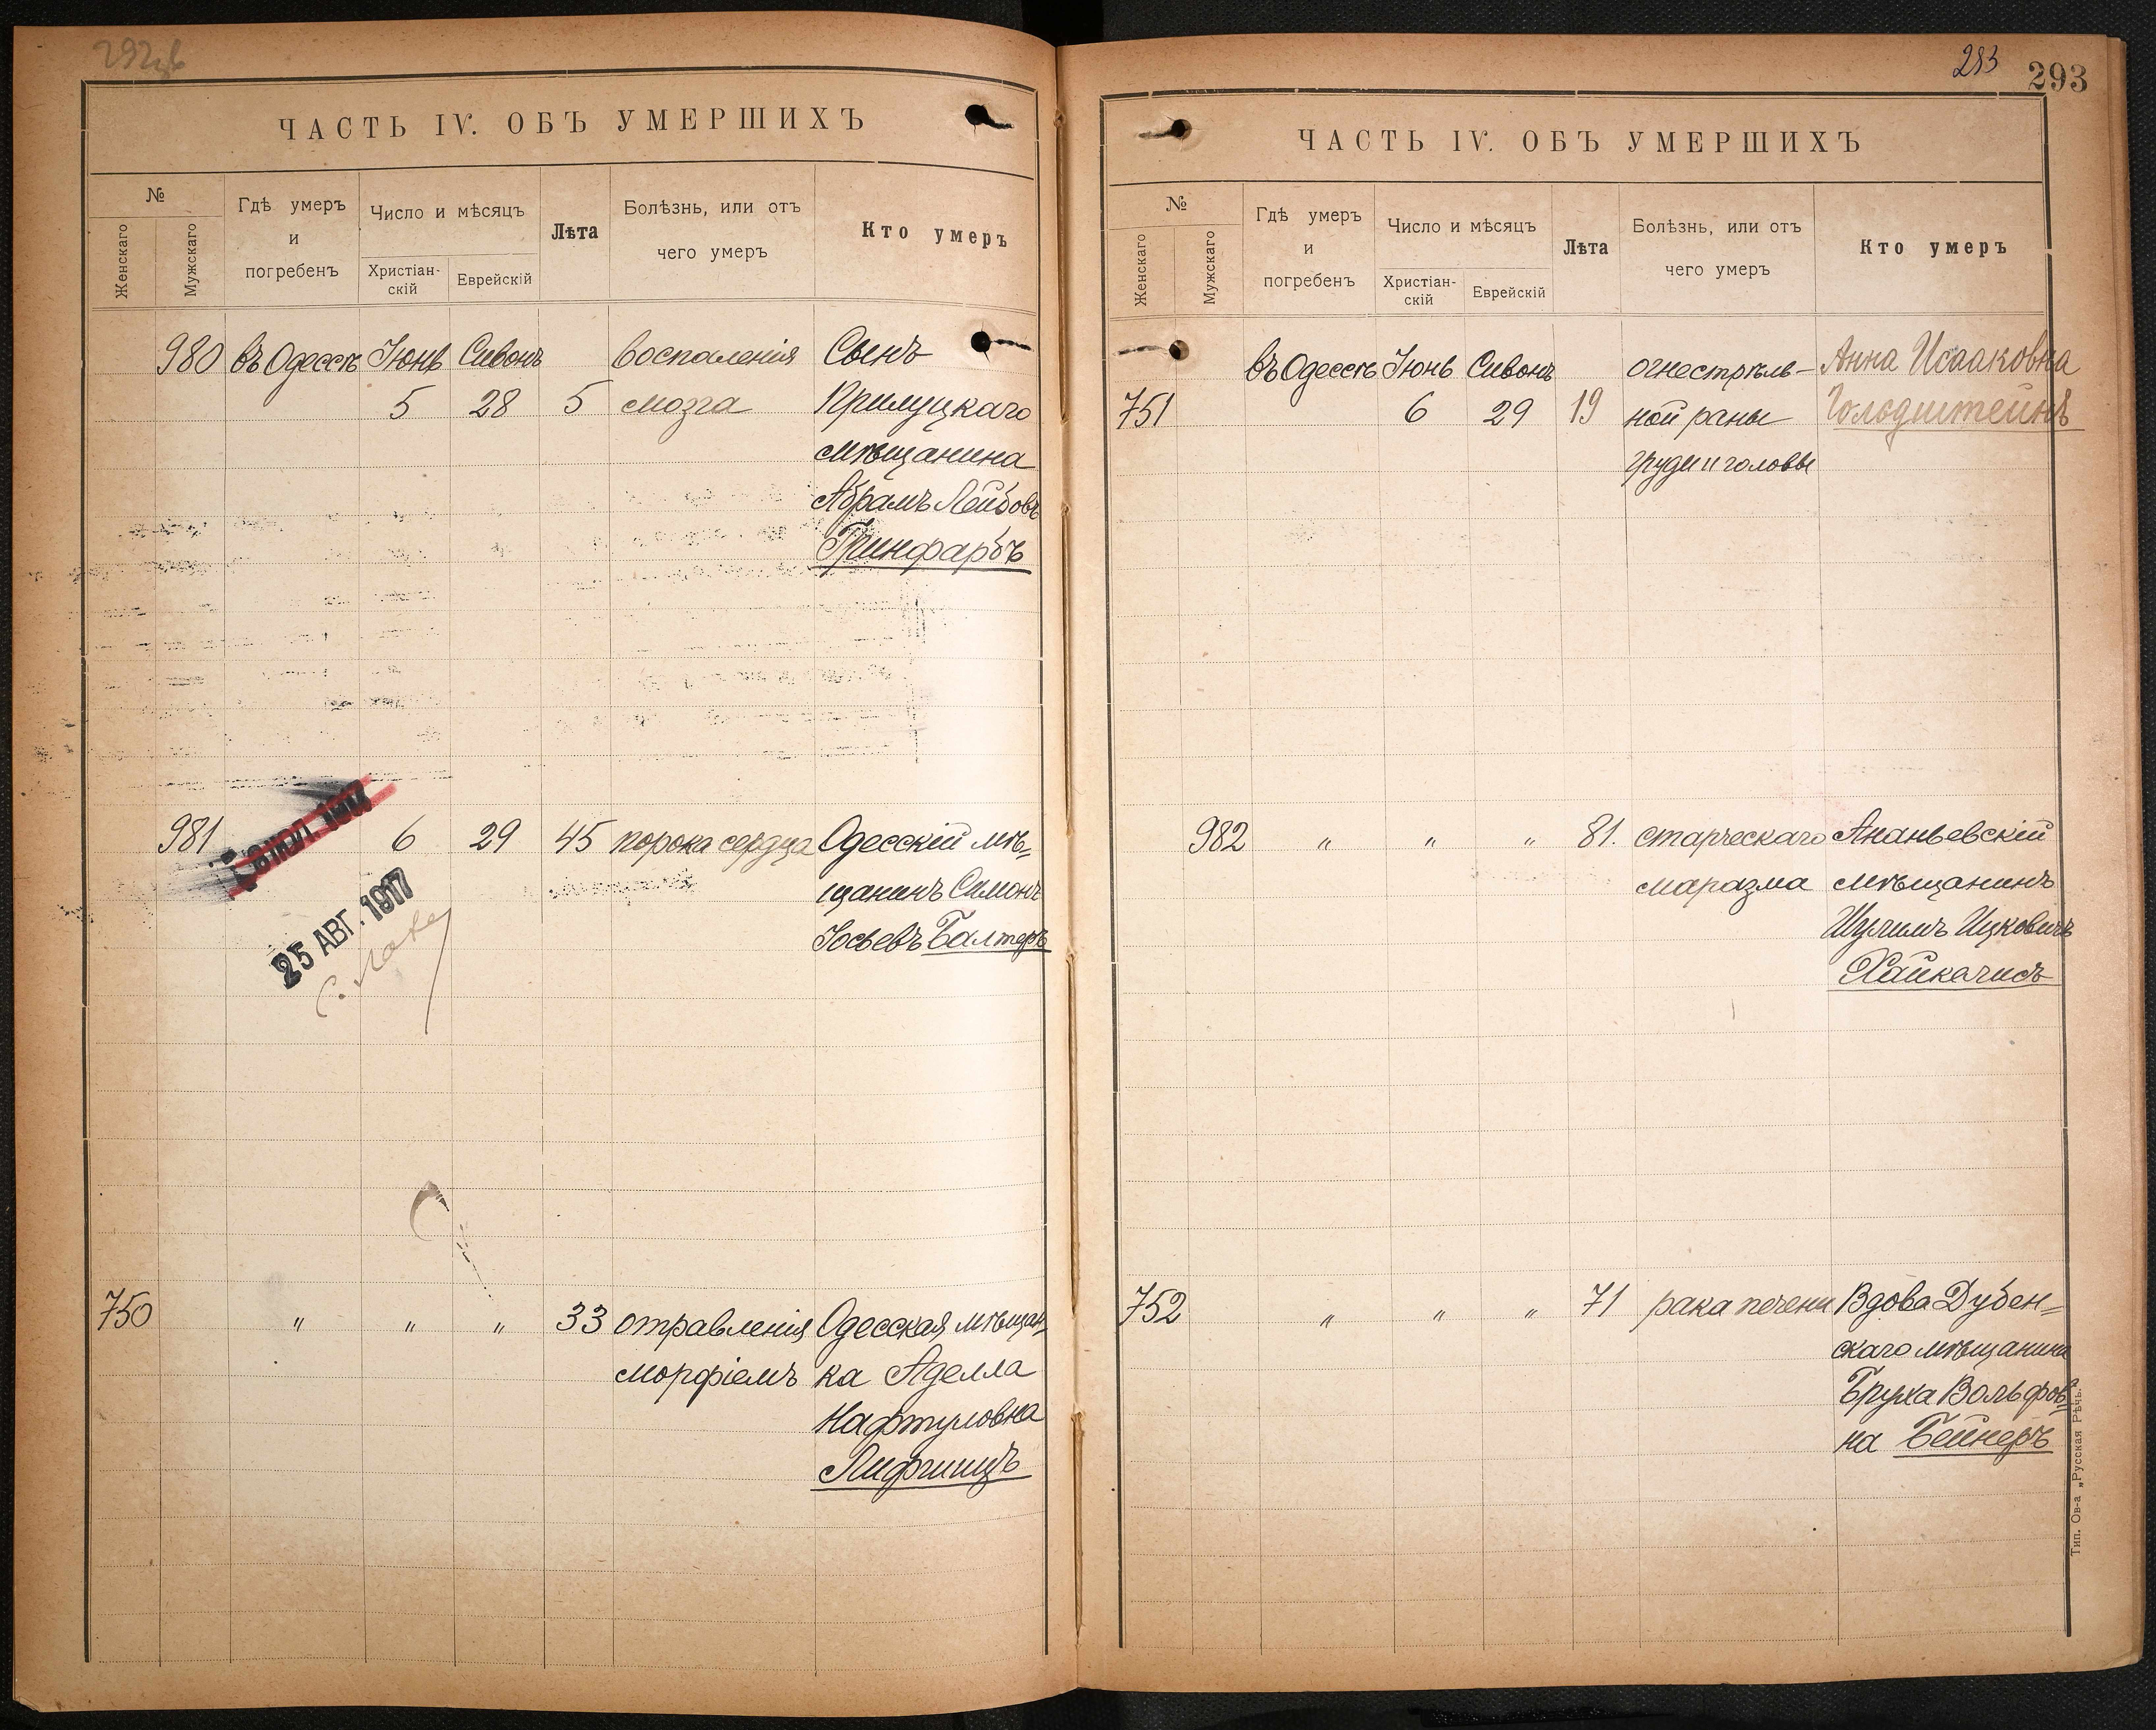 ЧАСТЬ IV. ОБЪ УМЕРШИХЪ
№
Женскаго
Мужскаго
Гдѣ умеръ
и
погребенъ
Число и мѣсяцъ
Христіан-
скій
Еврейскій
Лѣта
Болѣзнь, или отъ
чего умеръ
Кто умеръ
980 въ Одессѣ Іюнь Сивонъ воспаленія Сынъ
5 28 5 мозга Прилуцкаго
мѣщанина
Абрамъ Лейбовъ
Гринфарбъ
981 6 29 45 порока сердца Одесскій мѣ=
щанинъ Симонъ
Іосьевъ Балтеръ
25 АВГ. 1917
750 " " " 33 отравленія Одесская мѣщан-
морфіемъ ка Аделла
Нафтуловна
Лифшицъ
293
293
ЧАСТЬ IV. ОБЪ УМЕРШИХЪ
№
Женскаго
Мужскаго
Гдѣ умеръ
и
погребенъ
Число и мѣсяцъ
Христіан-
скій
Еврейскій
Лѣта
Болѣзнь, или отъ
чего умеръ
Кто умеръ
въ Одессѣ Іюнь Сивонъ огнестрѣль- Анна Исааковна
751 6 29 19 ной раны Голодштейнъ
груди и головы
982 " " " 81. старческаго Ананьевскій
маразма мѣщанинъ
Шулимъ Ицковичъ
Хайкелисъ
752 " " " 71 рака печени Вдова Дубен=
скаго мѣщанина
Бруха Вольфов=
на Бейнеръ
Тип. Ов-а „Русская Рѣчь."